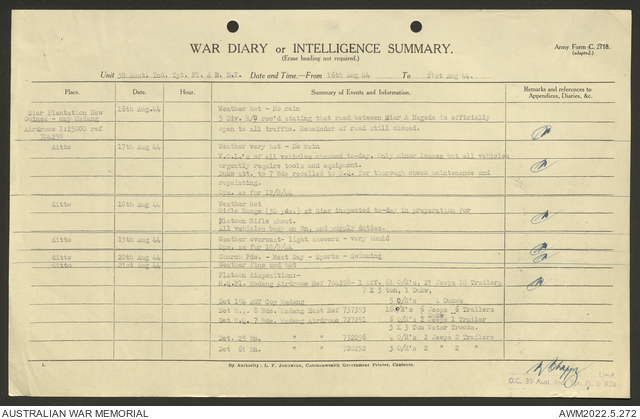 WAR DIARY or INTELLIGENCE SUMMARY.
(Erase heading not required.)
Army Form C. 2118.
(adapted.)
Unit 32 Aust. Ind. Tpt. Pl. Date and Time.—From 16th Aug 44 To 21st Aug 44.
Place. Date. Hour. Summary of Events and Information. Remarks and references to Appendices, Diaries, &c.
Siar Plantation New 16th Aug.44 Weather hot - No rain
Guinea - map Madang 5 Div. R/O rec'd stating that road between Siar & Nagada is officially
Airdrome 1:25000 ref open to all traffic. Remainder of road still closed.
704298
ditto 17th Aug 44 Weather very hot - No rain
of all vehicles checked to-day. Only minor losses but all vehicles
urgently require tools and equipment.
Dukw att. to 7 Bde recalled to H.Q. for thorough check maintenance and
repainting.
Ops. as for
ditto 18th Aug 44 Weather hot
Rifle Range (30 yds.) at Siar inspected to-day in preparation for
Platoon Rifle shoot.
All vehicles busy on Bn, and supply duties.
ditto 19th Aug 44 Weather overcast - light showers - very humid
Ops. as for 18/8/44
ditto 20th Aug 44 Church Pde. - Rest Day - Sports - Swimming
ditto 21st Aug 44 Weather fine and hot
Platoon disposition:-
H.Q.Pl. Madang Airdrome Ref 704298- 1 Off. 61 O/R's, 21 Jeeps 10 Trailers
7 X 3 ton, 1 Dukw,
Det 154 AGT Coy Madang 5 O/R's 4 Dukws
Det H.Q. 8 Bde. Madang East Ref 737393 O/R's 6 Jeeps 6 Trailers
Det H.Q. 7 Bde. Madang Airdrome 727292 6 O/R's 2 Jeeps 1 Trailer
3 X 3 Ton Water Trucks.
Det. 25 Bn. " " 732296 4 O/R's 2 Jeeps 2 Trailers
Det 61 Bn. " " 720292 3 O/R's 2 " 2 "
By Authority: L. F. Johnston, Commonwealth Government Printer, Canberra.
O.C. 39 Aus.
AUSTRALIAN WAR MEMORIAL
AWM2022.5.272